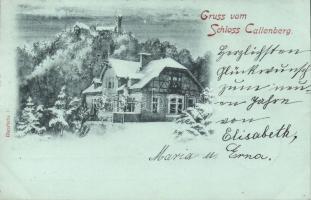 Gruss vom
Schloss Callenberg.
Herzlichsten
Glückwunsch
zum neu-
en Jahre
von
Elisabeth,
Maria u. Erna.